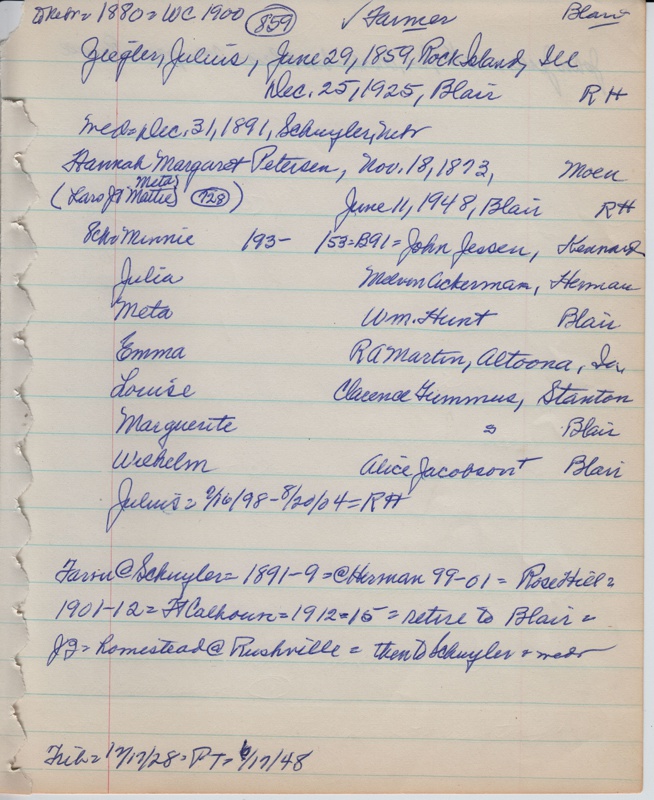 to Nebr = 1880 = WC 1900 (859) ✓ Farmer Blair
Ziegler, Julius, June 29, 1859, Rock Island, Ill
Dec. 25, 1925, Blair RH
med = Dec. 31, 1891, Schuyler, Nebr
Hannah Margaret Petersen, Nov. 18, 1873, Moen
(Lars J & Mattie Meta 728) June 11, 1948, Blair RH
Minnie 193- 153=B91= John Jessen, Kennard
Julia Melvin Ackerman, Herman
Meta Wm. Hunt Blair
Emma RA Martin, Altoona, Ia,
Louise Clarence Fummus, Stanton
Marguerite Blair
Wilhelm Alice Jacobson Blair
Julius = 9/16/98 - 8/20/04 = RH
Farm @ Schuyler = 1891-9 = @ Herman 99-01 = Rose Hill =
1901-12 = Ft Calhoun = 1912-15 = retire to Blair =
JZ = homestead @ Rushville = then to Schuyler & med
Trib = 12/17/28 = PT = 6/17/48